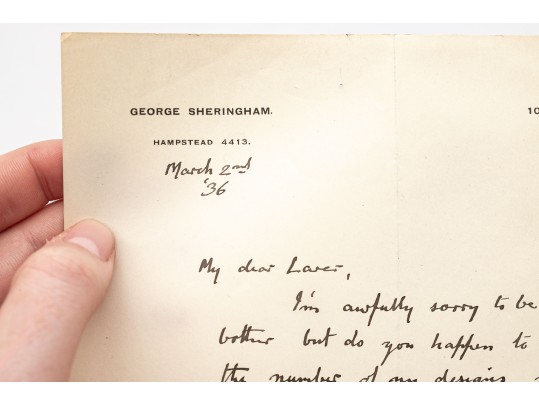 GEORGE SHERINGHAM.
10
HAMPSTEAD 4413.
March 2nd
'36
My dear Laver,
I'm awfully sorry to be
bother but do you happen to
the number of my designs